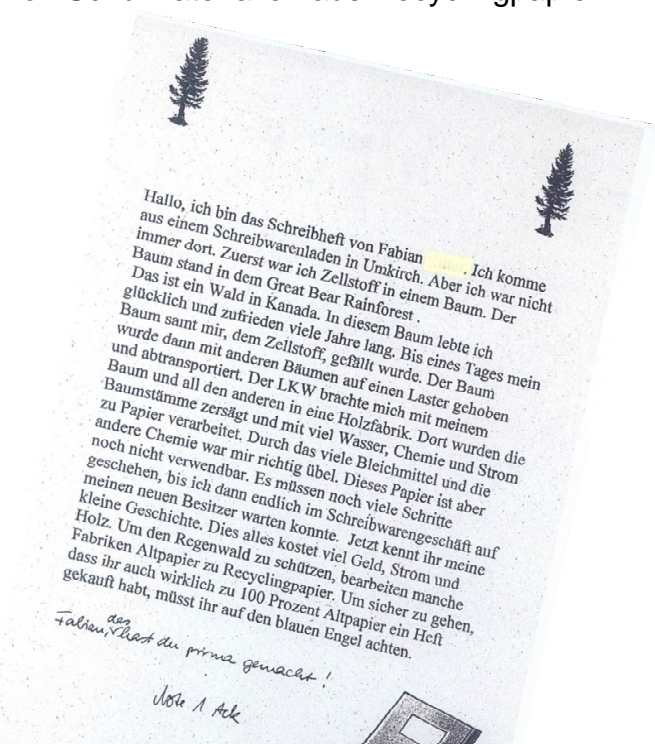 Hallo, ich bin das Schreibheft von Fabian . Ich komme
aus einem Schreibwarenladen in Umkirch. Aber ich war nicht
immer dort. Zuerst war ich Zellstoff in einem Baum. Der
Baum stand in dem Great Bear Rainforest .
Das ist ein Wald in Kanada. In diesem Baum lebte ich
glücklich und zufrieden viele Jahre lang. Bis eines Tages mein
Baum samt mir, dem Zellstoff, gefällt wurde. Der Baum
wurde dann mit anderen Bäumen auf einen Laster gehoben
und abtransportiert. Der LKW brachte mich mit meinem
Baum und all den anderen in eine Holzfabrik. Dort wurden die
Baumstämme zersägt und mit viel Wasser, Chemie und Strom
zu Papier verarbeitet. Durch das viele Bleichmittel und die
andere Chemie war mir richtig übel. Dieses Papier ist aber
noch nicht verwendbar. Es müssen noch viele Schritte
geschehen, bis ich dann endlich im Schreibwarengeschäft auf
meinen neuen Besitzer warten konnte. Jetzt kennt ihr meine
kleine Geschichte. Dies alles kostet viel Geld, Strom und
Holz. Um den Regenwald zu schützen, bearbeiten manche
Fabriken Altpapier zu Recyclingpapier. Um sicher zu gehen,
dass ihr auch wirklich zu 100 Prozent Altpapier ein Heft
gekauft habt, müsst ihr auf den blauen Engel achten.
Fabian, das hast du prima gemacht!
Note 1 Ack